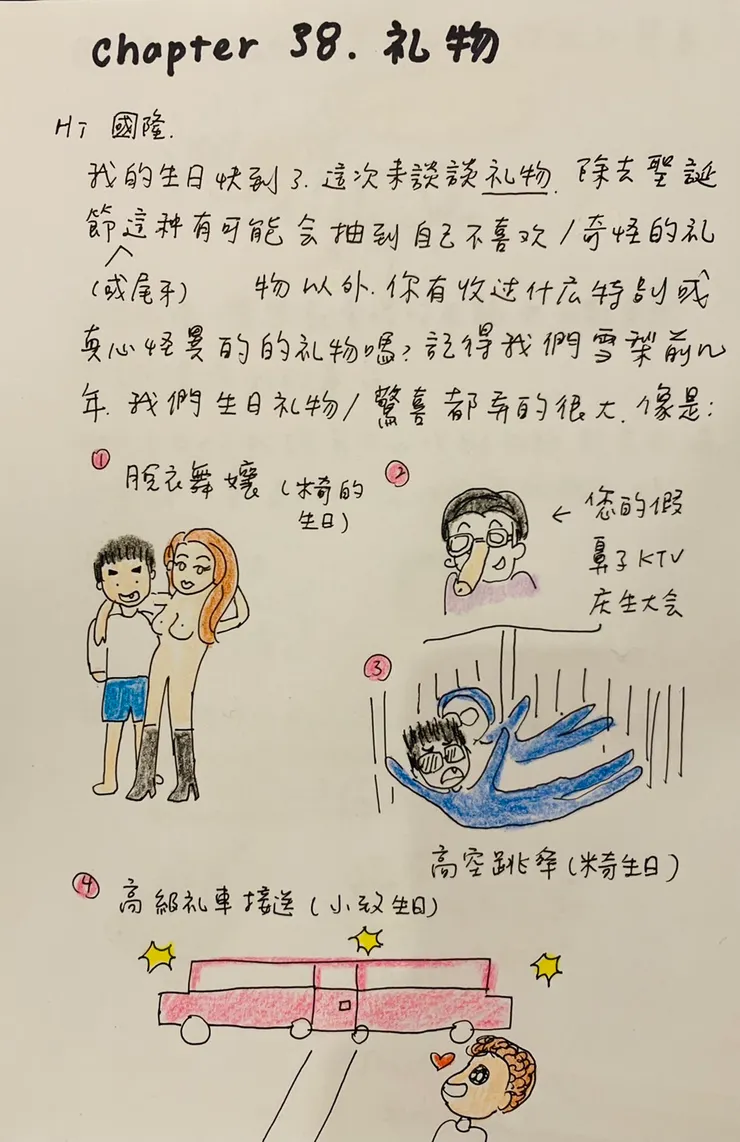 chapter 38. 礼物
Hi 國隆.
我的生日快到了. 這次来談談礼物. 除去聖誕
節這种有可能会抽到自己不喜欢/奇怪的礼
(或尾牙) 物以外. 你有收过什庅特別或
真心怪異的的礼物嗎? 記得我們雪梨前几
年. 我們生日礼物/驚喜都弄的很大. 像是:
① 脫衣舞孃 (米奇的
生日)
② ← 您的假
鼻子KTV
庆生大会
③
高空跳傘(米奇生日)
④ 高級礼車接送 (小致生日)